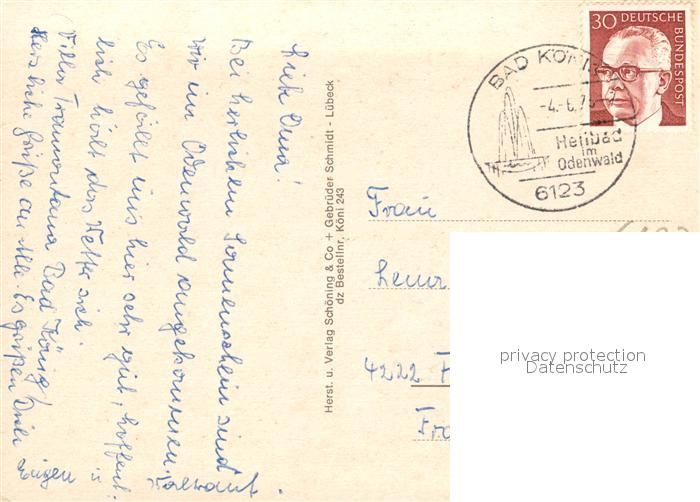 Liebe Oma!
Bei herlichem Sonnenschein sind
wir im Odenwald angekommen.
Es gefällt uns hier sehr gut, hoffent-
lich hält das Wetter sich.
Villa Tramontana Bad König
Herzliche Grüße an Alle. Es grüßen Dich
u
Herst. u. Verlag Schöning & Co + Gebrüder Schmidt - Lübeck
dz Bestellnr. Köni 243
30 DEUTSCHE
BUNDESPOST
BAD KÖNIG
-4.-6.7
Heilbad
im
Odenwald
6123
Frau
4222
privacy protection
Datenschutz